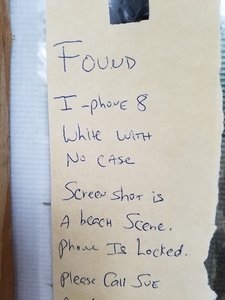 Found
I-phone 8
White with
No case
Screen shot is
A beach Scene.
phone Is Locked.
Please Call Sue